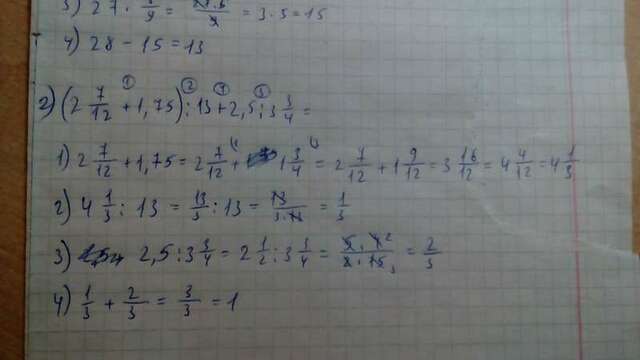 3) 27 · 5/9 = 27·5/9 = 3·5 = 15
4) 28 − 15 = 13
2) (2 7/12 + 1,75) : 13 + 2,5 : 3 3/4 =
1) 2 7/12 + 1,75 = 2 7/12 + 1 3/4 = 2 7/12 + 1 9/12 = 3 16/12 = 4 4/12 = 4 1/3
2) 4 1/3 : 13 = 13/3 : 13 = 13/3·13 = 1/3
3) 2,5 : 3 3/4 = 2 1/2 : 3 3/4 = 5·4/2·15 = 2/3
4) 1/3 + 2/3 = 3/3 = 1